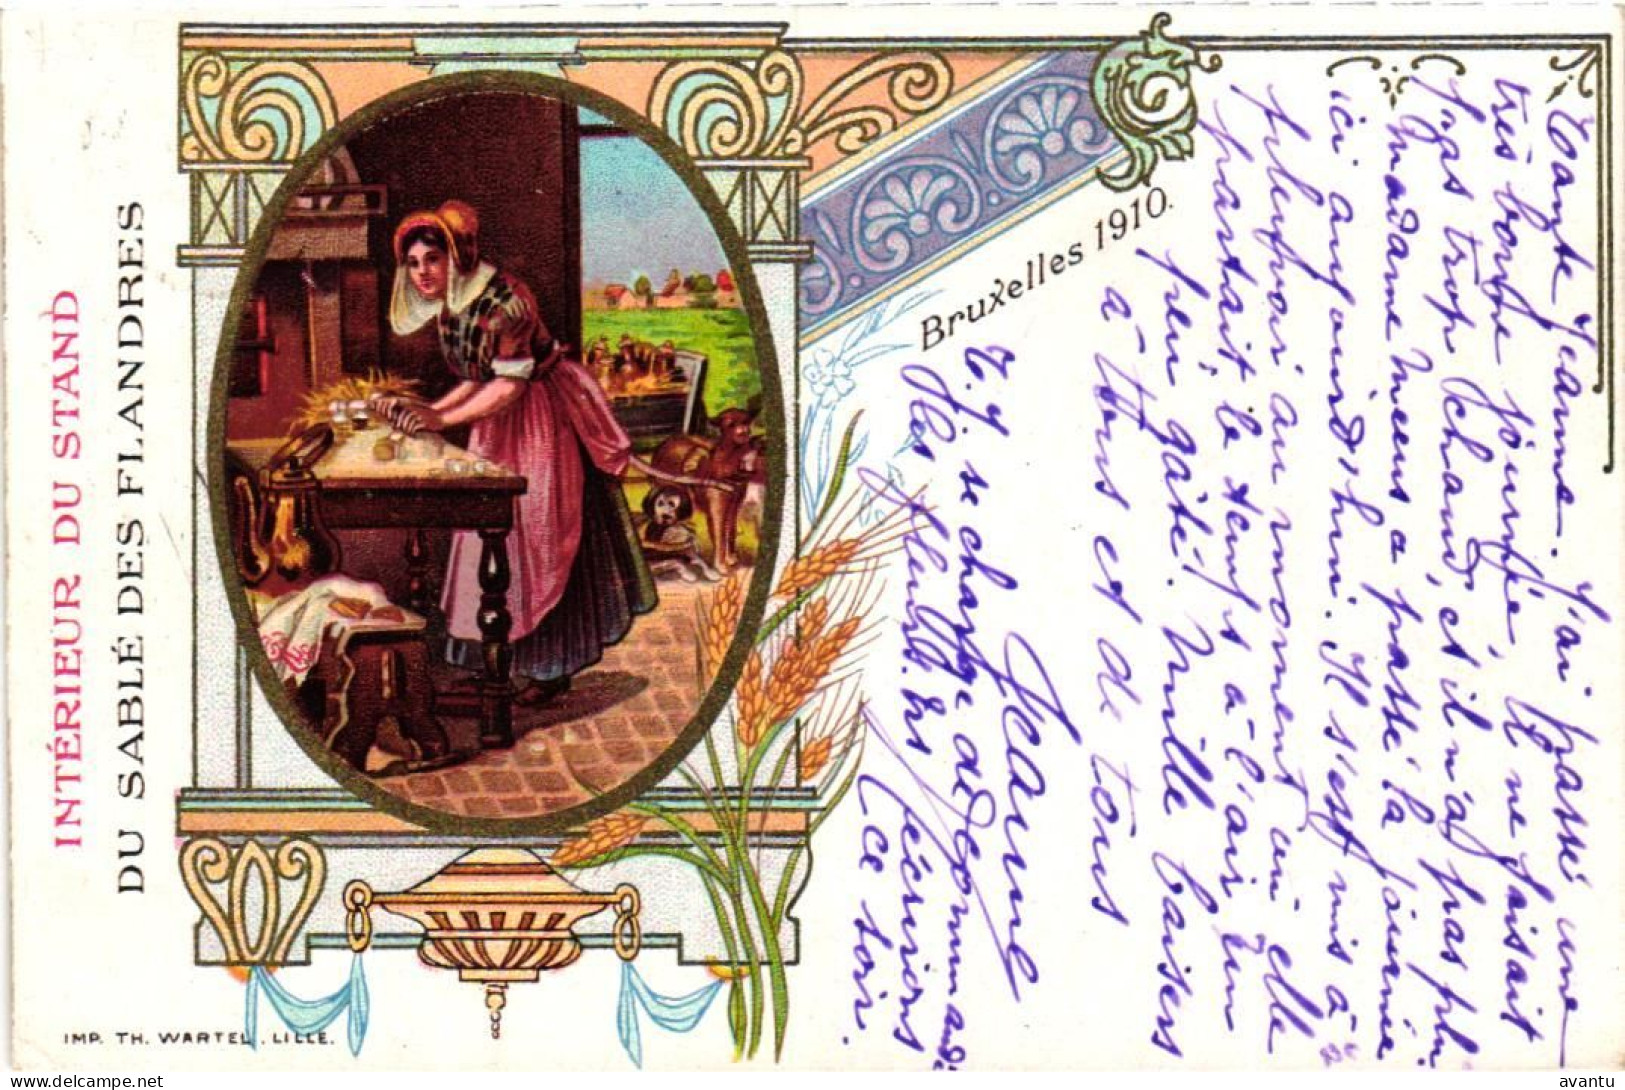 INTÉRIEUR DU STAND
DU SABLÉ DES FLANDRES
Bruxelles 1910.
IMP. TH. WARTEL. LILLE.
Tante Jeanne. J'ai passé une
très bonne journée, il ne faisait
pas trop chaud, et il n'a pas plu
Madame Meeus a passé la journée
ici aujourd'hui. Il s'est mis à
pleuvoir au moment où elle
partait le temps à l'air un
peu gâté. Mille baisers
à tous et de tous
Jeanne
T. J. se charge de commander
les fleurs. Ns écrivons
ce soir.
delcampe.net
avantu